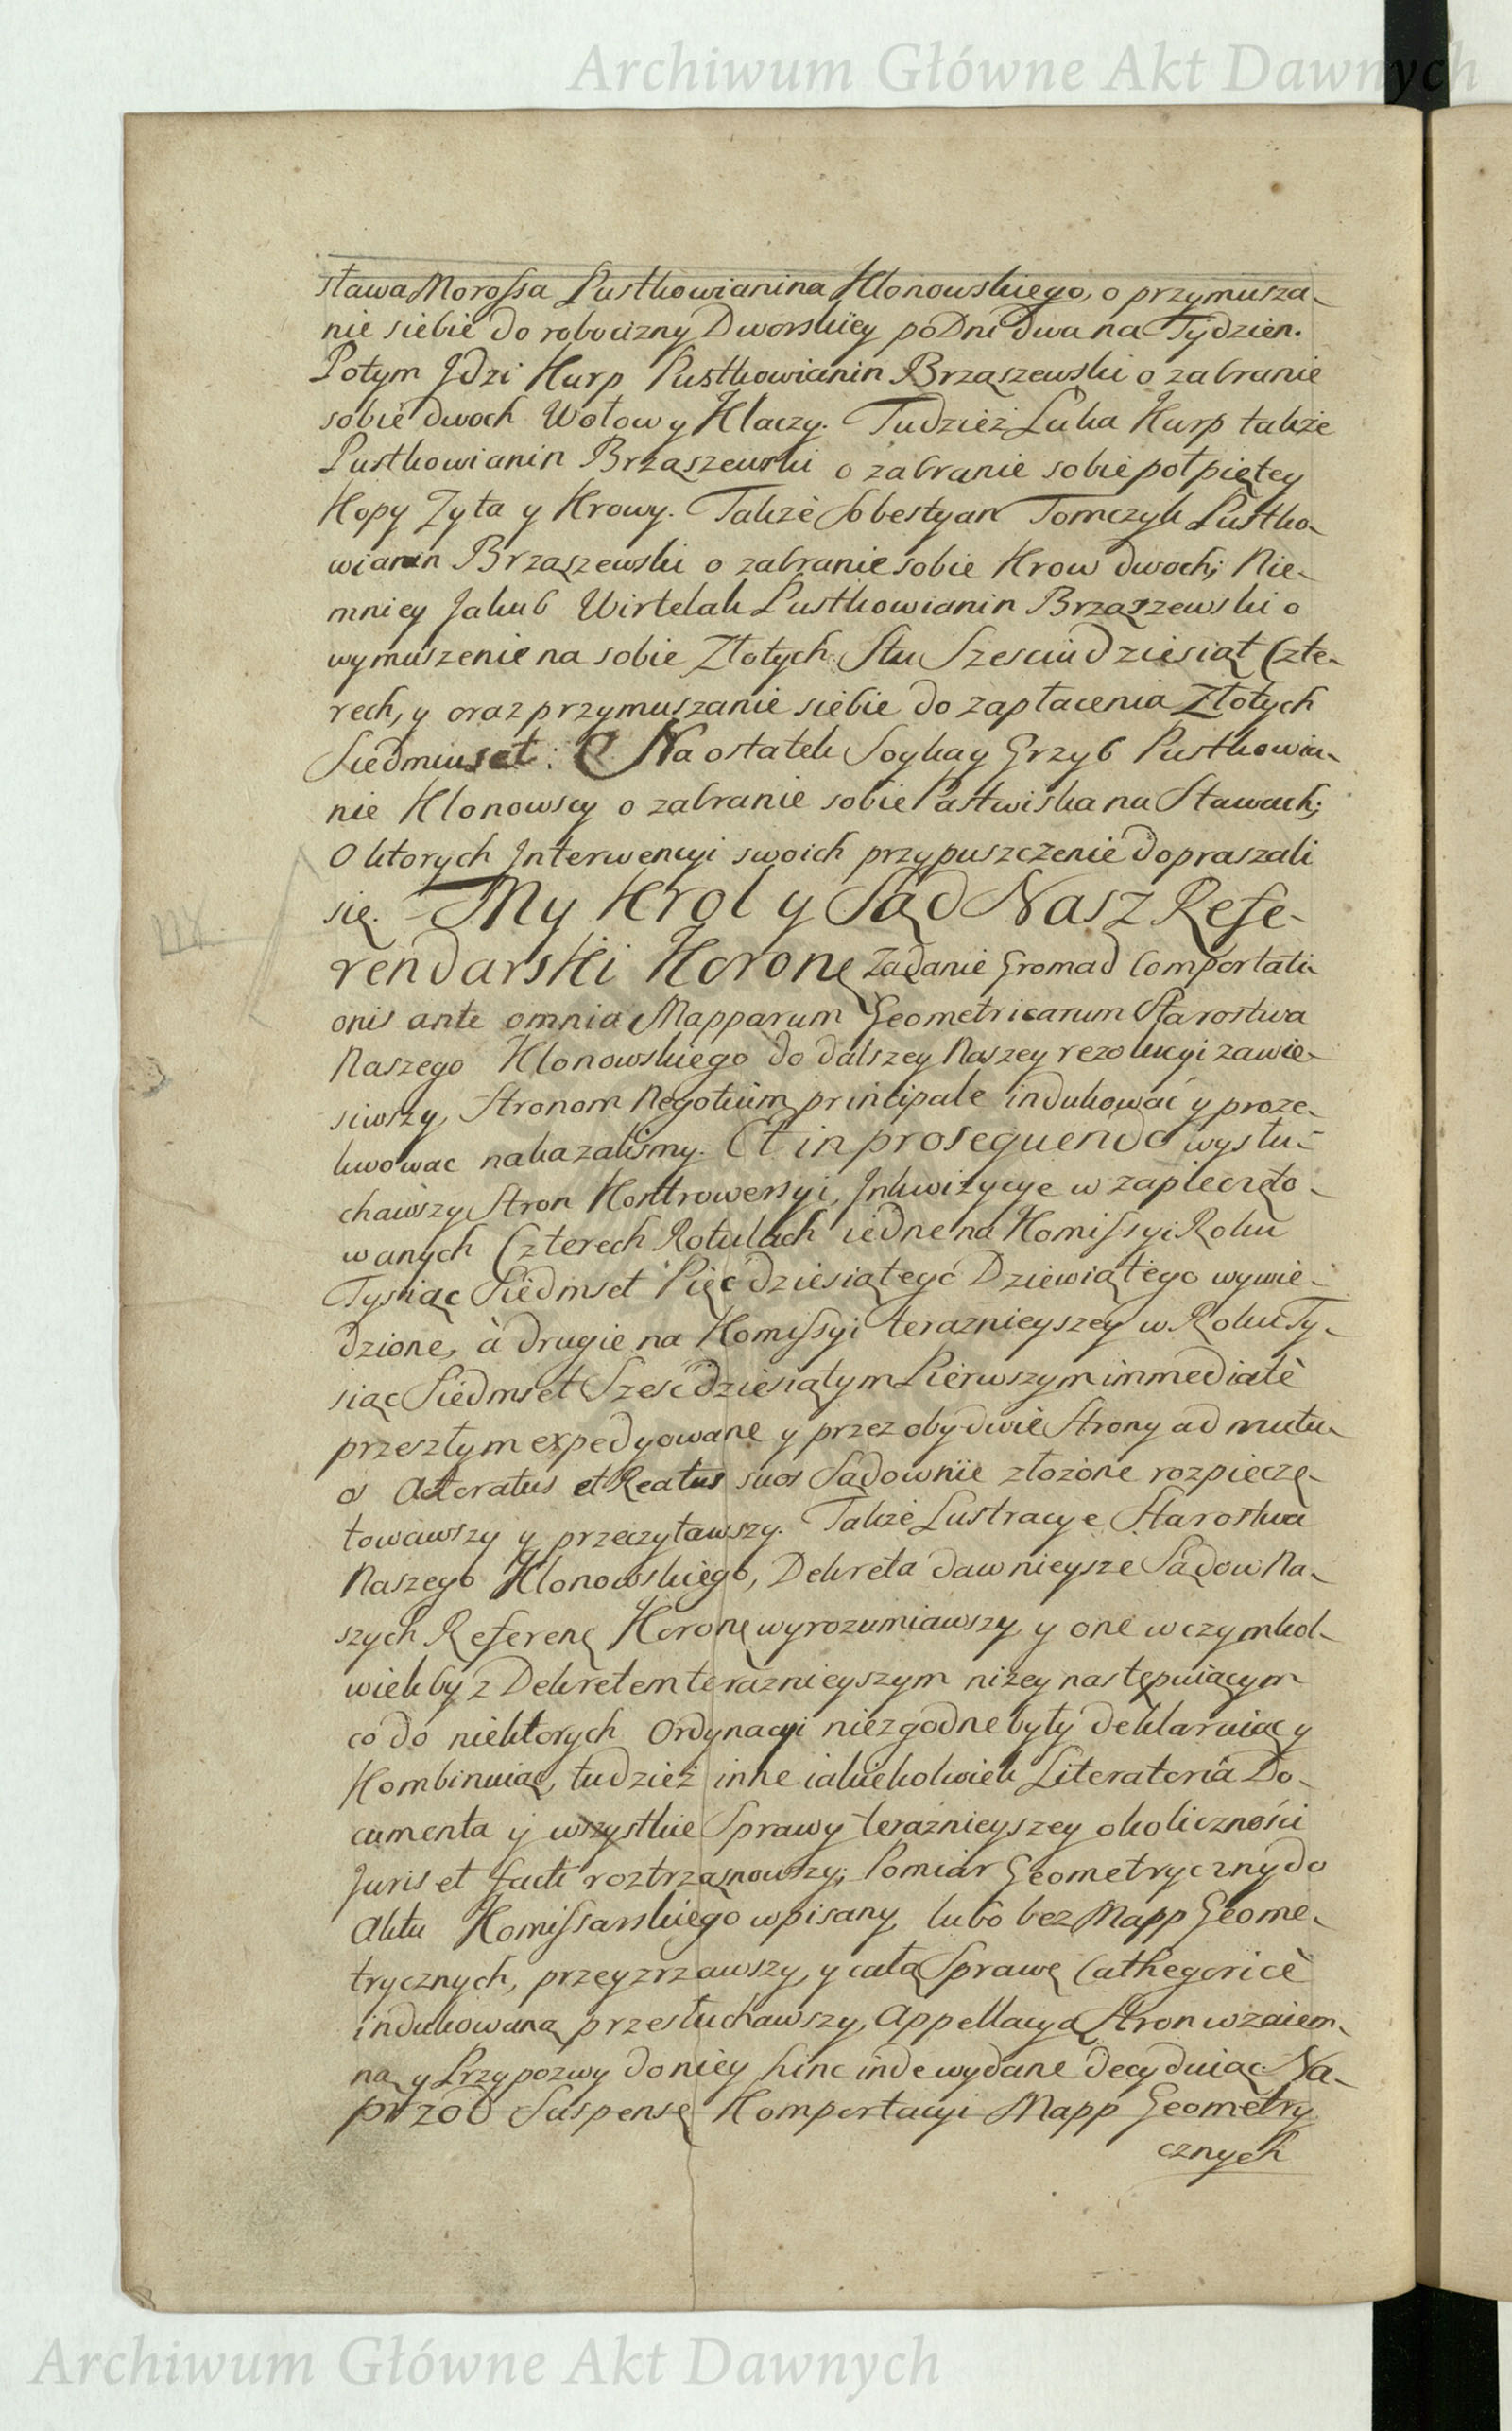 Archiwum Główne Akt Dawnych
sława Morossa Pustkowianina Klonowskiego, o przymusza-
nie siebie do robocizny Dworskiey po Dni dwa na Tydzien.
Potym Jdzi Kurp Pustkowianin Brząszewski o zabranie
sobie dwoch Wołow y Klaczy. Tudzież Luka Kurp także
Pustkowianin Brząszewski o zabranie sobie poł piętey
Kopy Zyta y Krowy. Także Sobestyan Tomczyk Pustko-
wianin Brząszewski o zabranie sobie Krow dwoch; Nie-
mniey Jakub Wirtelak Pustkowianin Brząszewski o
wymuszenie na sobie Złotych Stu Szesciudziesiąt Czte-
rech, y oraz przymuszanie siebie do zapłacenia Złotych
Siedmiuset: Na ostatek Soyka y Grzyb Pustkowia-
nie Klonowscy o zabranie sobie Pastwiska na Stawach;
O ktorych Interwencyi swoich przypuszczenie dopraszali
się. - My Krol y Sąd Nasz Refe-
rendarski Koronę Ządanie Gromad Comportati-
onis ante omnia Mapparum Geometricarum Starostwa
Naszego Klonowskiego do dalszey Naszey rezolucyi zawie-
siwszy, Stronom Negotium principale indukować y proze-
kwować nakazaliśmy. Et in prosequendo wysłu-
chawszy Stron Kontrowersyi, Inkwizycye w zapieczęto-
wanych Czterech Rotułach iedne na Komissyi Roku
Tysiąc Siedmset Pięćdziesiątego Dziewiątego wywie-
dzione, à drugie na Komissyi terazniejszey w Roku Ty-
siąc Siedmset Sześćdziesiątym Pierwszym immediatè
przeszłym expedyowane y przez obydwie Strony ad mutu-
os Actoratus et Reatus suos Sądownie złożone rozpieczę-
towawszy y przeczytawszy. Także Lustracye Starostwa
Naszego Klonowskiego, Dekreta dawnieysze Sądow Na-
szych Referenę Koronę wyrozumiawszy y one w czymkol-
wiek by z Dekretem teraznieyszym niżey następuiącym
co do niektorych Ordynacyi niezgodne były deklaruiąc y
Kombinuiąc, tudzież inne iakiekolwiek Literatoria Do-
cumenta y wszystkie Sprawy teraznieyszey okoliczności
Juris et facti roztrząsnowszy; Pomiar Geometryczny do
Aktu Komissarskiego wpisany, lubo bez Mapp Geome-
trycznych, przeyzrzawszy, y całą Sprawę Cathegoricè
indukowaną przesłuchawszy, Appellacyą Stron wzaiem-
ną y Przypozwy do niey hinc inde wydane decyduiąc. Na-
przod Suspensę Komportacyi Mapp Geometry
cznych
Archiwum Główne Akt Dawnych